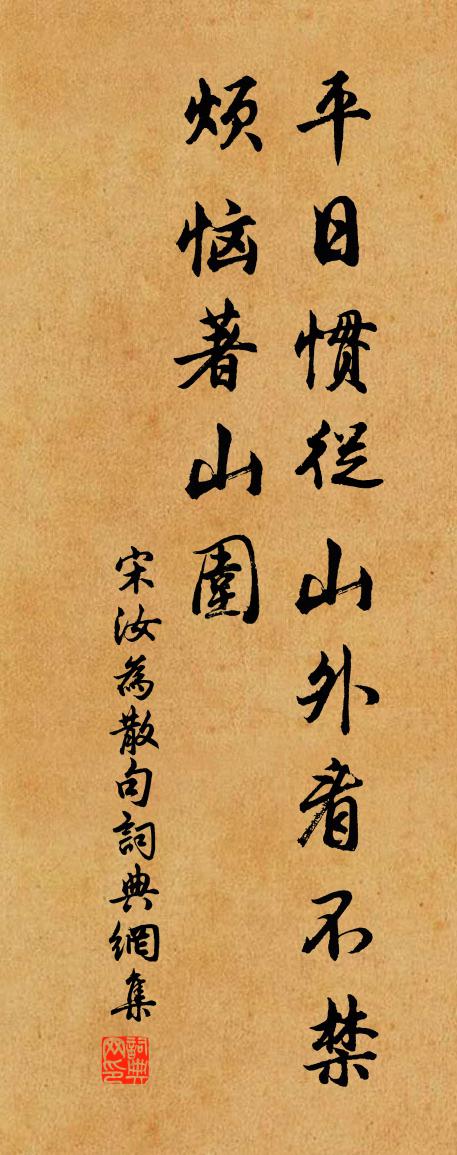 平日慣從山外看不禁
煩惱著山圍
宋汝為散句詞典網集
詞典網印